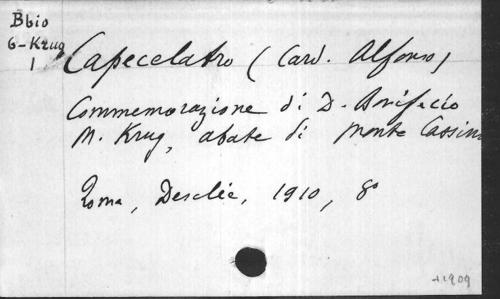 Bbio
6-Krug
1
Capecelatro (Card. Alfonso)
Commemorazione di D. Bonifacio
M. Krug, abate di Monte Cassino
Roma, Desclée, 1910, 8º